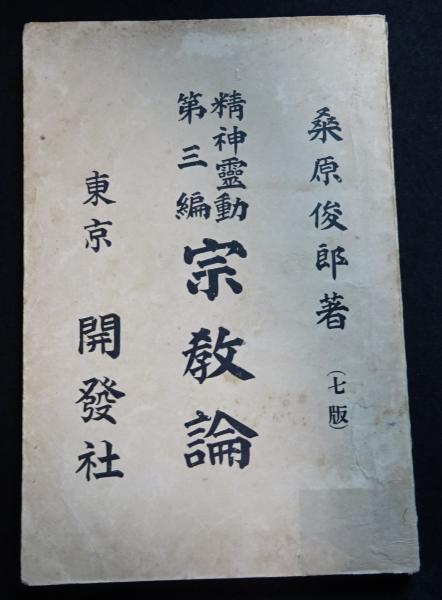 桑原俊郎著（七版）
精神靈動
第三編
宗教論
東京 開發社